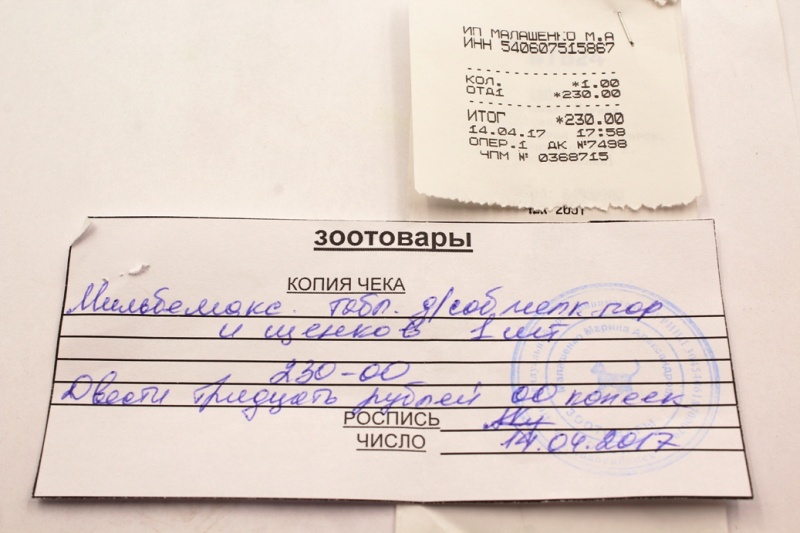 ИП МАЛАШЕНКО М.А
ИНН 540607515867
КОЛ. *1.00
ОТД1 *230.00
ИТОГ *230.00
14.04.17 17:58
ОПЕР.1 ДК №7498
ЧПМ № 0368715
ЗООТОВАРЫ
КОПИЯ ЧЕКА
Мильбемакс. табл. д/соб мелк. пор
и щенков 1 шт
230-00
Двести тридцать рублей 00 копеек
РОСПИСЬ
ЧИСЛО 14.04.2017